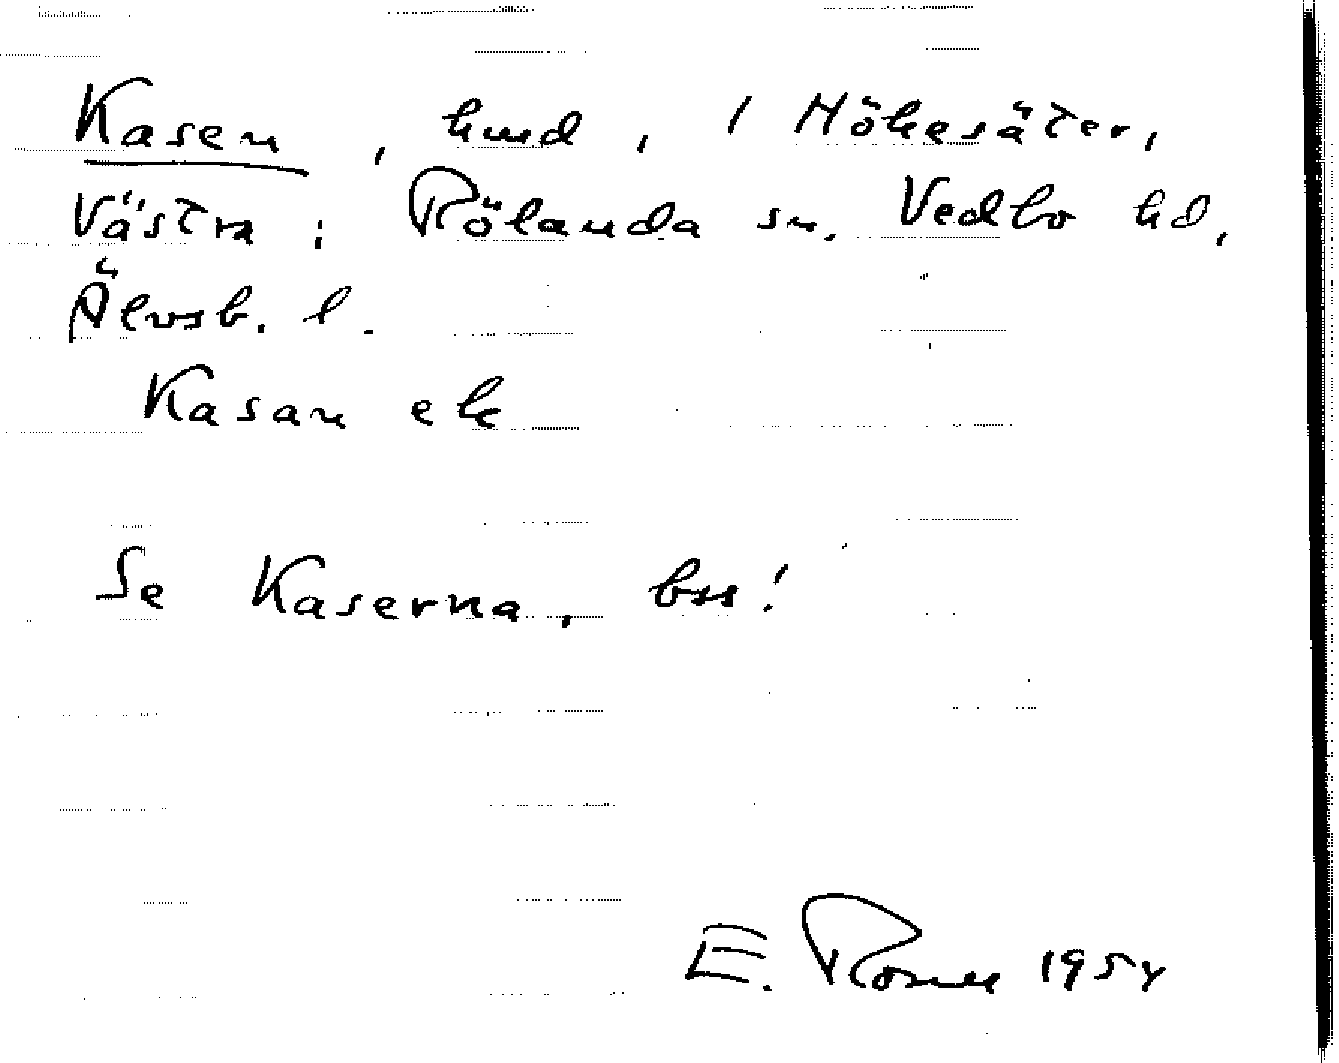 Kasen, hmd, i Hökesäter,
Västra; Rölanda sn. Vedbo hd,
Älvsb. l.
Kasan
Se Kaserna, bss!
E. 1954